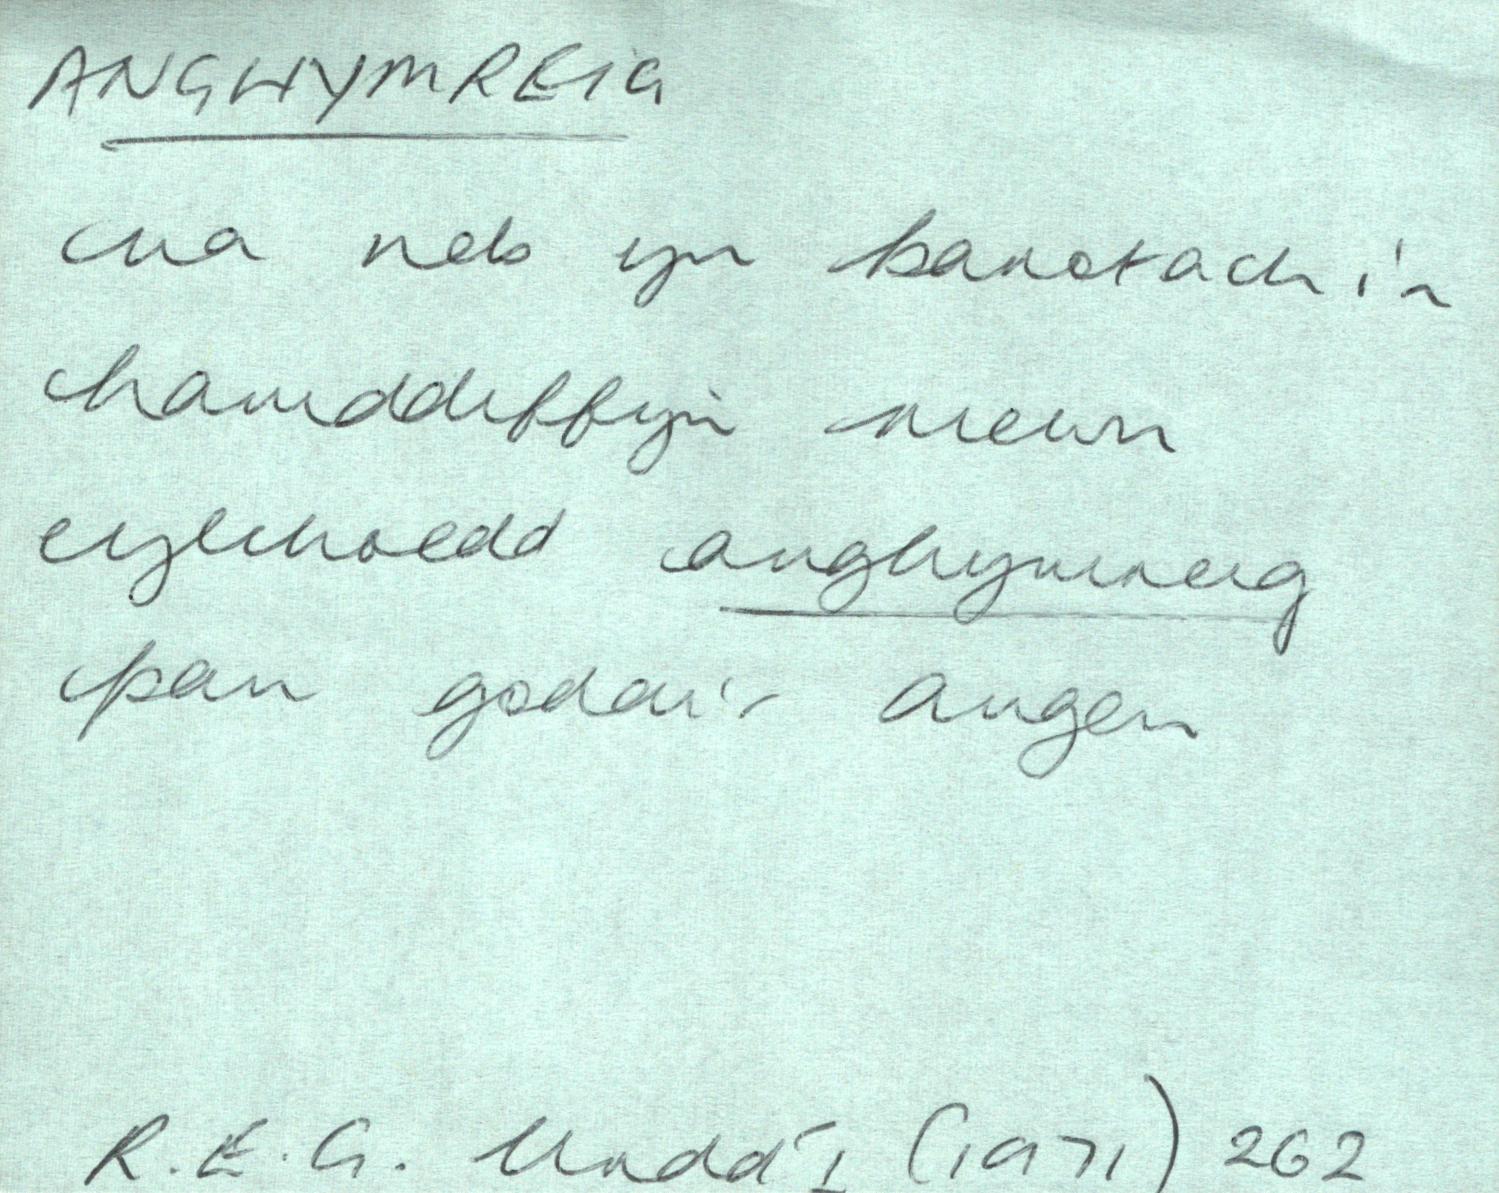 ANGHYMREIG
na neb yn barotach i'n
hamddiffyn mewn
cylchoedd anghymreig
pan godai'r angen
R.E.G. Urdd I (1971) 262